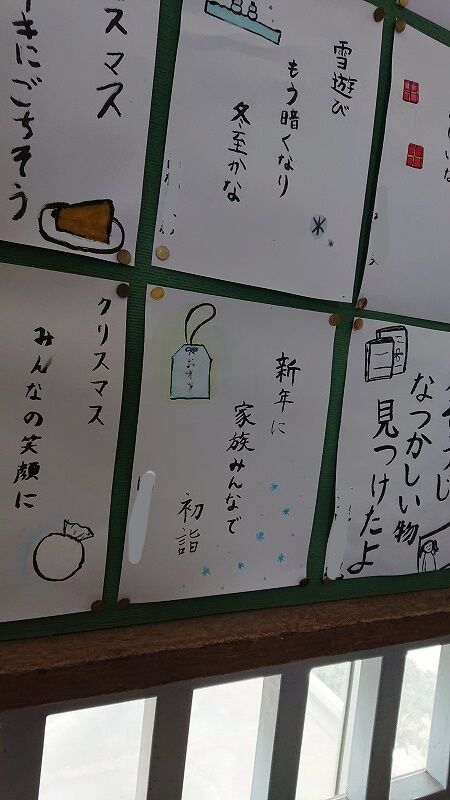 雪遊び
もう暗くなり
冬至かな
スマス
にごちそう
なつかしい物
見つけたよ
新年に
家族みんなで
初詣
お守り
クリスマス
みんなの笑顔に